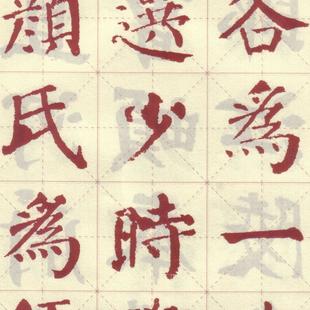 各為一
選少時
顏氏為